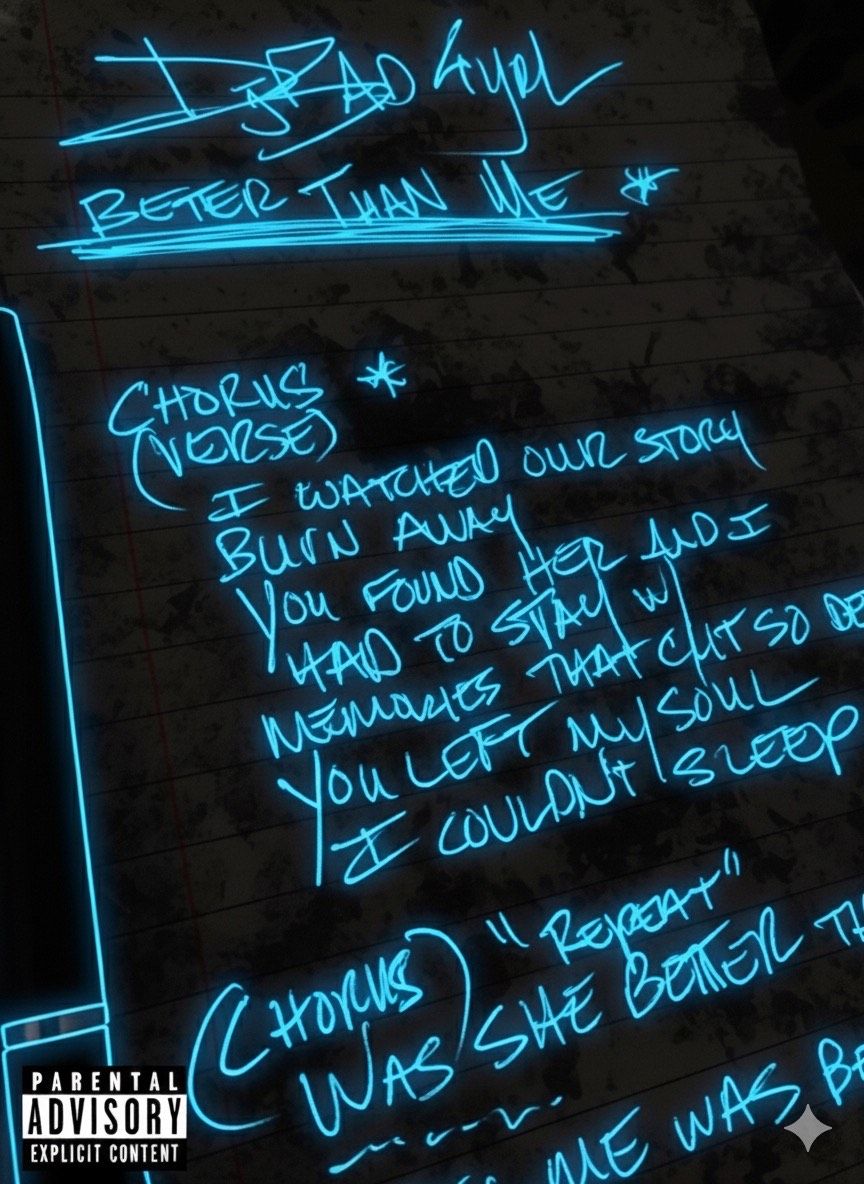 DJ BAD GYRL
BETER THAN ME *
CHORUS *
(VERSE)
I WATCHED OUR STORY
BURN AWAY
YOU FOUND HER AND I
HAD TO STAY W/
MEMORIES THAT CUT SO DE
YOU LEFT MY SOUL
I COULDN'T SLEEP
(CHORUS) "REPEAT"
WAS SHE BETTER TH
ME WAS BE
PARENTAL
ADVISORY
EXPLICIT CONTENT